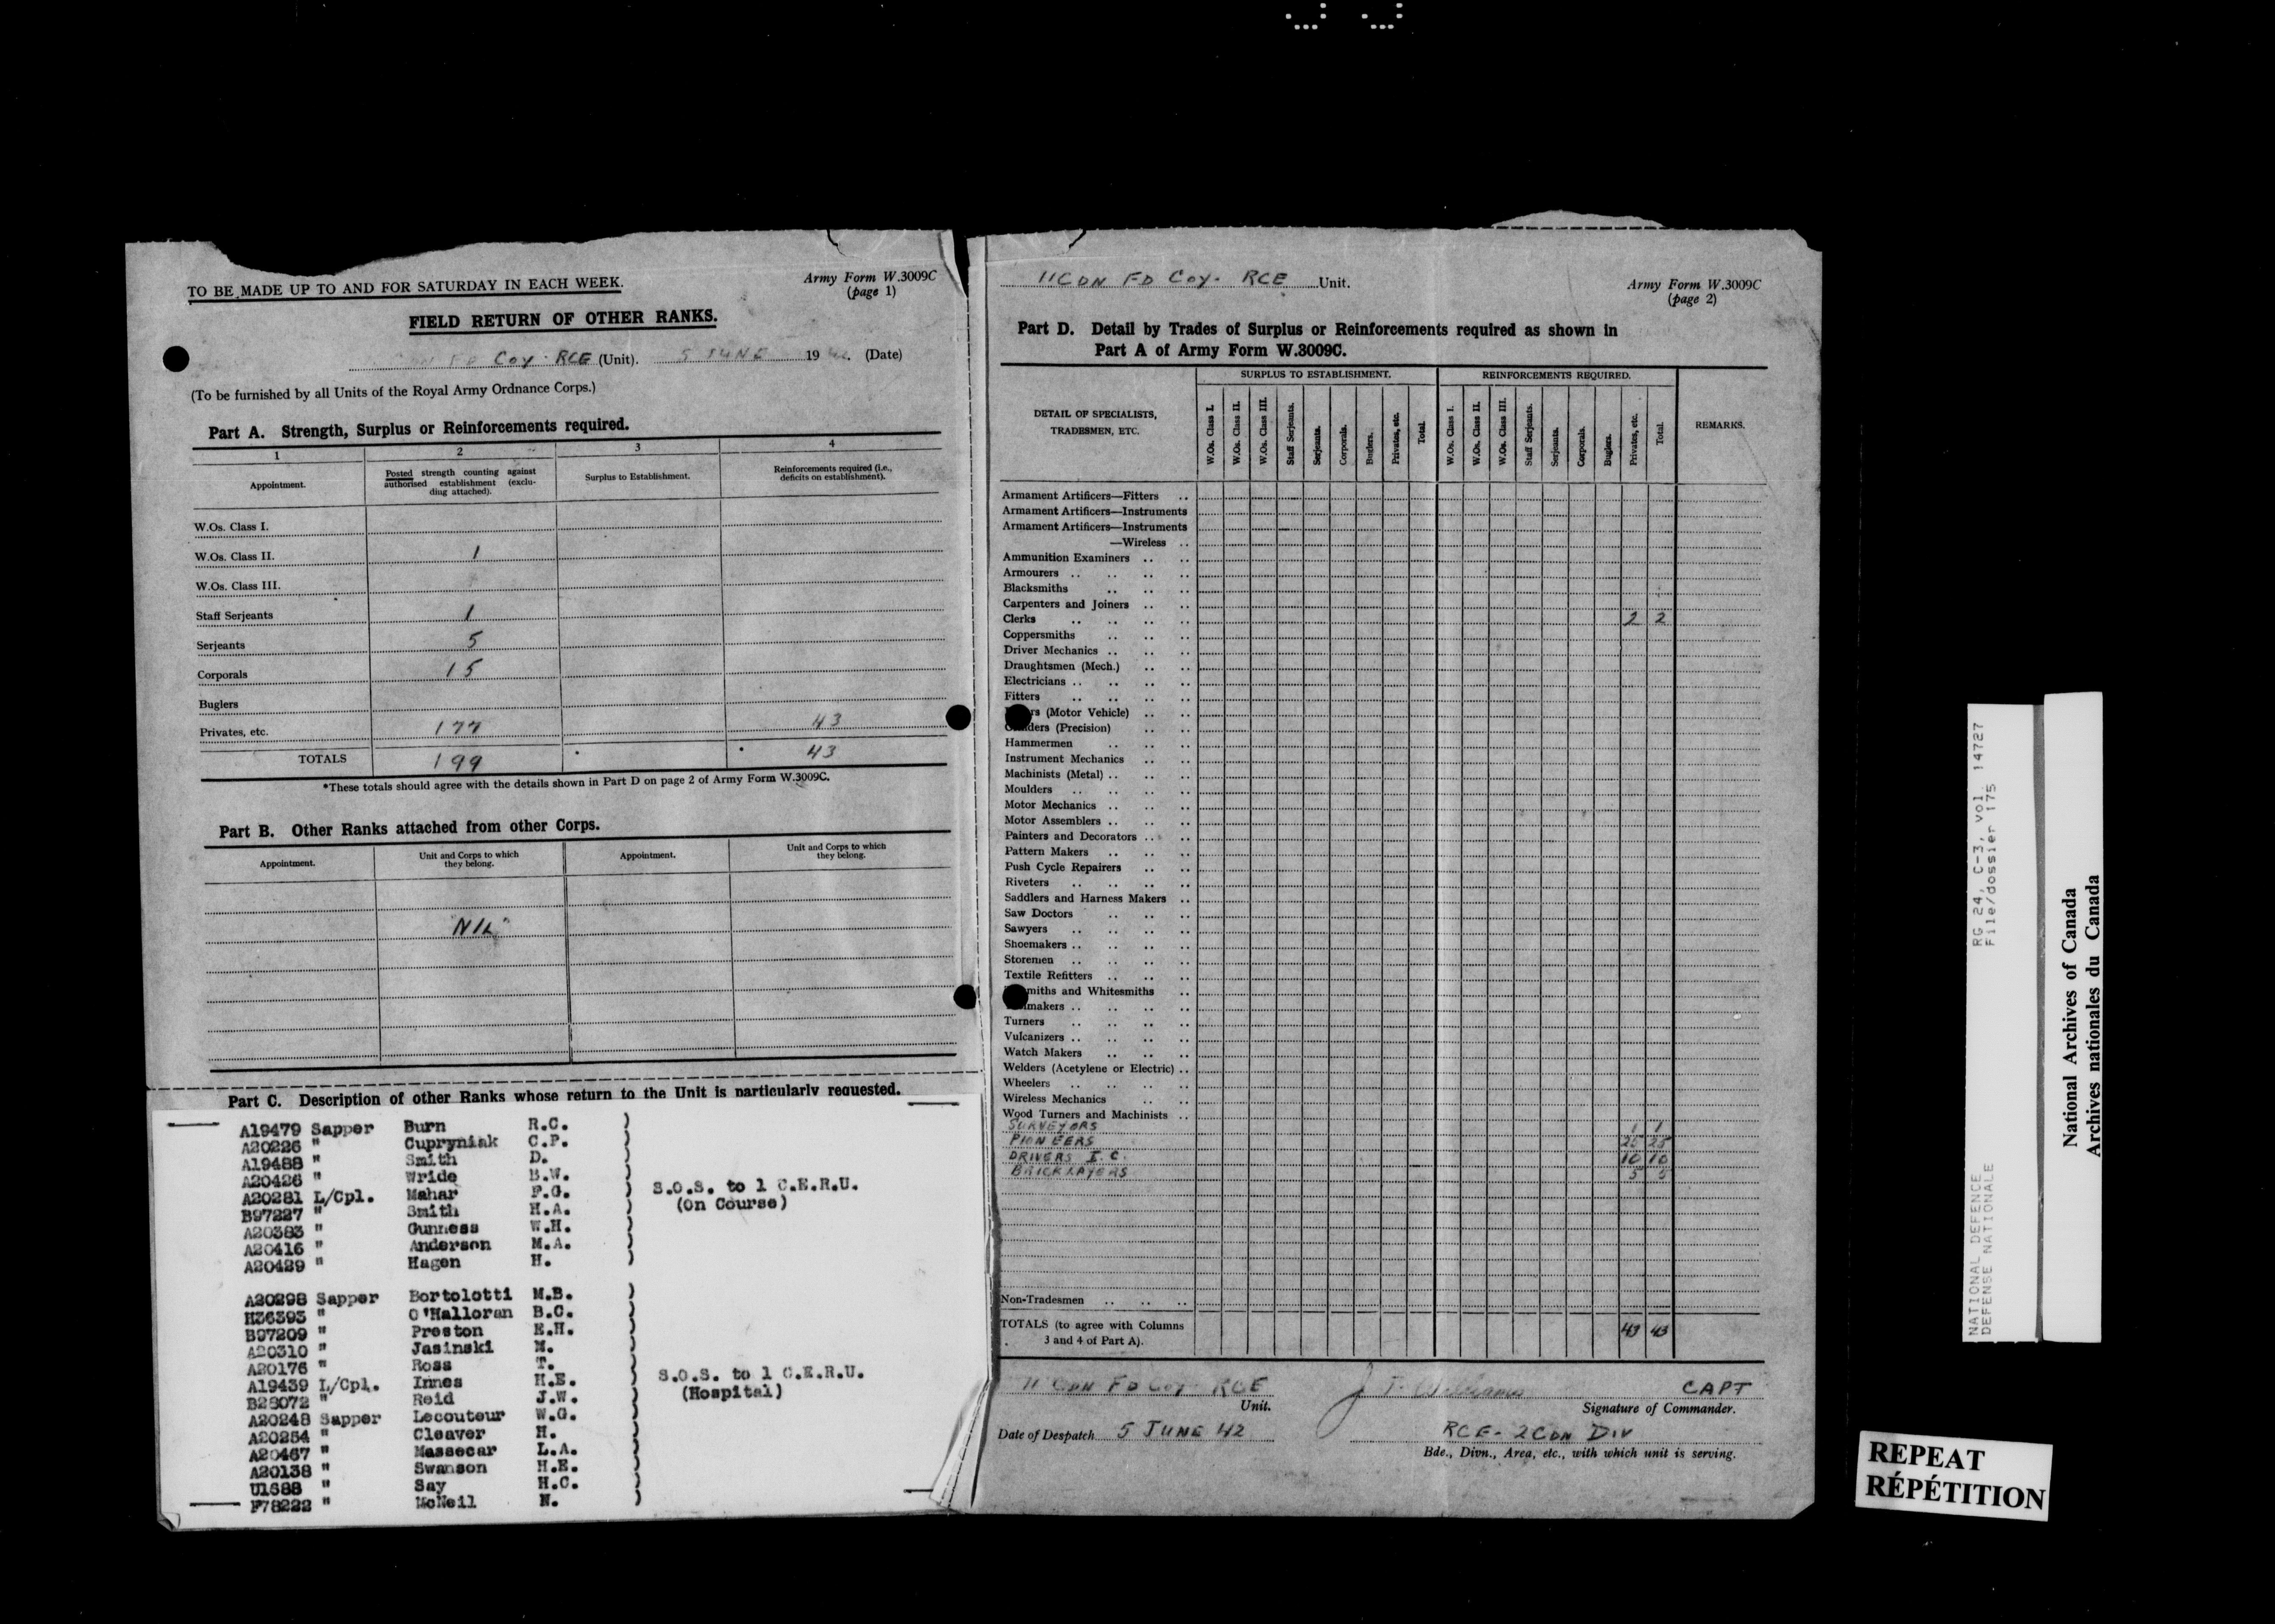 TO BE MADE UP TO AND FOR SATURDAY IN EACH WEEK.
Army Form W.3009C
(page 1)
FIELD RETURN OF OTHER RANKS.
CDN FD COY. RCE (Unit). 5 JUNE 19 42. (Date)
(To be furnished by all Units of the Royal Army Ordnance Corps.)
Part A. Strength, Surplus or Reinforcements required.
1 2 3 4
Appointment. Posted strength counting against authorised establishment (excluding attached). Surplus to Establishment. Reinforcements required (i.e., deficits on establishment).
W.Os. Class I.
W.Os. Class II. 1
W.Os. Class III.
Staff Serjeants 1
Serjeants 5
Corporals 15
Buglers
Privates, etc. 177 43
TOTALS 199 * * 43
*These totals should agree with the details shown in Part D on page 2 of Army Form W.3009C.
Part B. Other Ranks attached from other Corps.
Appointment. Unit and Corps to which they belong. Appointment. Unit and Corps to which they belong.
"NIL"
Part C. Description of other Ranks whose return to the Unit is particularly requested.
A19479 Sapper Burn R.C. )
A20226 " Cupryniak C.P. )
A19488 " Smith D. )
A20426 " Wride B.W. )
A20281 L/Cpl. Mahar F.G. ) S.O.S. to 1 C.E.R.U.
B97227 " Smith H.A. ) (On Course)
A20383 " Gunness W.H. )
A20416 " Anderson M.A. )
A20429 " Hagen H. )
A20298 Sapper Bortolotti M.B. )
H36393 " O'Halloran B.C. )
B97209 " Preston E.H. )
A20310 " Jasinski M. )
A20176 " Ross T. )
A19439 L/Cpl. Innes H.E. ) S.O.S. to 1 C.E.R.U.
B23072 " Reid J.W. ) (Hospital)
A20248 Sapper Lecouteur W.G. )
A20254 " Cleaver H. )
A20467 " Massecar L.A. )
A20138 " Swanson H.E. )
U1688 " Say H.C. )
F78222 " McNeil N. )
11 CDN FD COY. RCE Unit.
Army Form W.3009C
(page 2)
Part D. Detail by Trades of Surplus or Reinforcements required as shown in
Part A of Army Form W.3009C.
DETAIL OF SPECIALISTS, TRADESMEN, ETC. SURPLUS TO ESTABLISHMENT. REINFORCEMENTS REQUIRED. REMARKS.
W.Os. Class I. W.Os. Class II. W.Os. Class III. Staff Serjeants. Serjeants. Corporals. Buglers. Privates, etc. Total. W.Os. Class I. W.Os. Class II. W.Os. Class III. Staff Serjeants. Serjeants. Corporals. Buglers. Privates, etc. Total.
Armament Artificers—Fitters ..
Armament Artificers—Instruments
Armament Artificers—Instruments
—Wireless ..
Ammunition Examiners .. ..
Armourers .. .. .. ..
Blacksmiths .. .. ..
Carpenters and Joiners .. ..
Clerks .. .. .. .. 2 2
Coppersmiths .. .. ..
Driver Mechanics .. .. ..
Draughtsmen (Mech.) .. ..
Electricians .. .. .. ..
Fitters .. .. .. ..
rs (Motor Vehicle) .. ..
ders (Precision) .. ..
Hammermen .. .. ..
Instrument Mechanics .. ..
Machinists (Metal) .. .. ..
Moulders .. .. .. ..
Motor Mechanics .. .. ..
Motor Assemblers .. .. ..
Painters and Decorators .. ..
Pattern Makers .. .. ..
Push Cycle Repairers .. ..
Riveters .. .. .. ..
Saddlers and Harness Makers ..
Saw Doctors .. .. ..
Sawyers .. .. .. ..
Shoemakers .. .. .. ..
Storemen .. .. .. ..
Textile Refitters .. .. ..
miths and Whitesmiths ..
makers .. .. .. ..
Turners .. .. .. ..
Vulcanizers .. .. .. ..
Watch Makers .. .. ..
Welders (Acetylene or Electric) ..
Wheelers .. .. .. ..
Wireless Mechanics .. ..
Wood Turners and Machinists ..
SURVEYORS 1 1
PIONEERS 25 25
DRIVERS I.C. 10 10
BRICKLAYERS 5 5
Non-Tradesmen .. .. ..
TOTALS (to agree with Columns 3 and 4 of Part A). 43 43
11 CDN FD COY RCE
Unit.
J. Williams CAPT
Signature of Commander.
Date of Despatch 5 JUNE 42
RCE - 2 CDN DIV
Bde., Divn., Area, etc., with which unit is serving.
NATIONAL DEFENCE RG 24, C-3, vol 14727
DEFENSE NATIONALE File/dossier 175
National Archives of Canada
Archives nationales du Canada
REPEAT
RÉPÉTITION